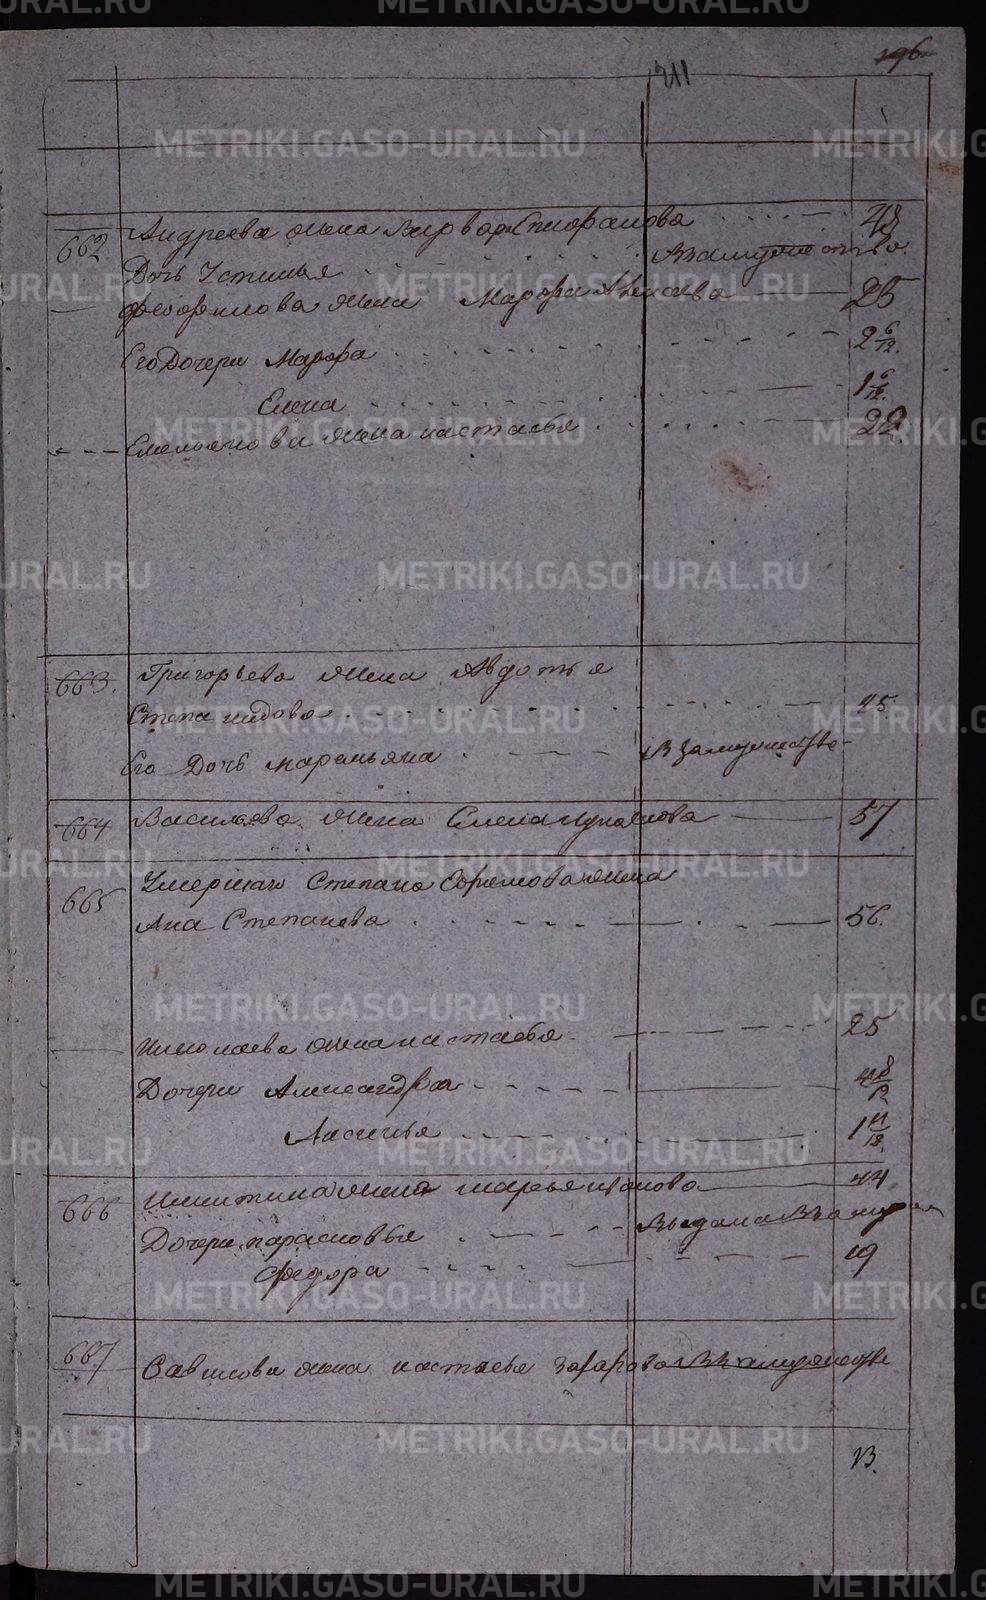 196
211
662 Андреева жена Варвара Епифанова 48
Дочь Устинья В замужестве
Феофилова жена Марфа 25
Его Дочери Марфа 2 6/12
Елена 1 6/12
Емельянова жена Настасья 22
663. Григорьева жена Авдотья
Степанидова 25
Его Дочь Маремьяна В замужестве
664 Васильева жена Елена Лукоянова 57
665 Умершаго Степана Ефремова жена
Ана Степанова 56.
Николаева жена Настасья 25
Дочери Александра 4 8/12
Аксинья 1 11/12
666 Никитина жена Марья Иванова 44
Дочери Парасковья Выдана В замуж
Федора 19
667 Савинова жена Настасья Захарова В замужестве
13.